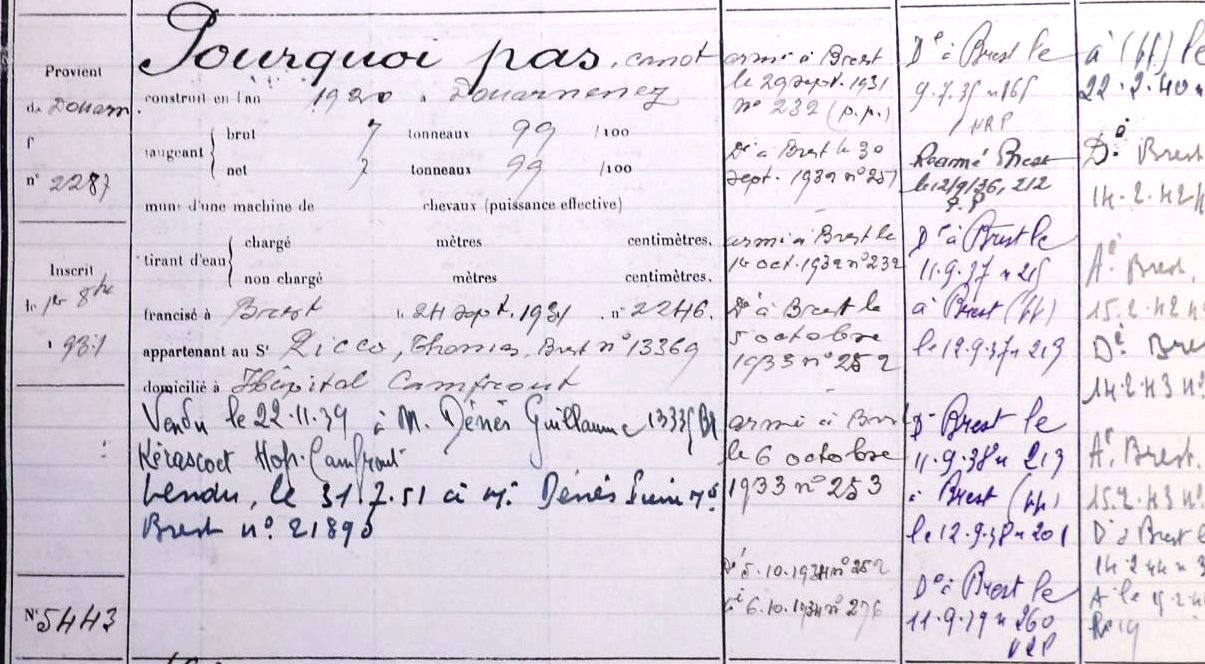 Provient
de Douarn.
f
n° 2287
Inscrit
le 1er 8bre
1931
N° 5443
Pourquoi pas, canot
construit en l'an 1920 à Douarnenez
jaugeant { brut 7 tonneaux 99 /100
net 7 tonneaux 99 /100
muni d'une machine de chevaux (puissance effective)
tirant d'eau { chargé mètres centimètres.
non chargé mètres centimètres.
francisé à Brest le 24 sept. 1931 n° 2246.
appartenant au Sr Ricco, Thomas, Brest n° 13369
domicilié à Hôpital Camfrout
Vendu le 22.11.39 à M. Dénès Guillaume 13335 Br
Kérascoet Hop. Camfrout
Vendu, le 31.7.51 à M. Dénès
Brest n° 21890
armé à Brest
le 29 sept. 1931
n° 232 (p.p.)
Dé à Brest le 30
sept. 1932 n° 251
armé à Brest le
1er oct. 1932 n° 232
Dé à Brest le
5 octobre
1933 n° 252
armé à Brest
le 6 octobre
1933 n° 253
Dé 5.10.1934 n° 252
6.10.1934 n° 276
Dé à Brest le
9.7.35 n 165
NRP
Réarmé Brest
le 12/9/36, 212
P.P
Dé à Brest le
11.9.37 n 215
à Brest (pp)
le 12.9.37 n 213
Dé Brest le
11.9.38 n 213
à Brest (pp)
le 12.9.38 n 201
Dé à Brest le
11.9.39 n 260
NRP
à (pp) le
22.2.40 n
Dé à Brest
14.2.42 n
Aé Brest,
15.2.42 n
Dé Bre
14.2.43 n°
Aé Brest.
15.2.43 n°
D à Brest l
14.2.44 n 3
A le